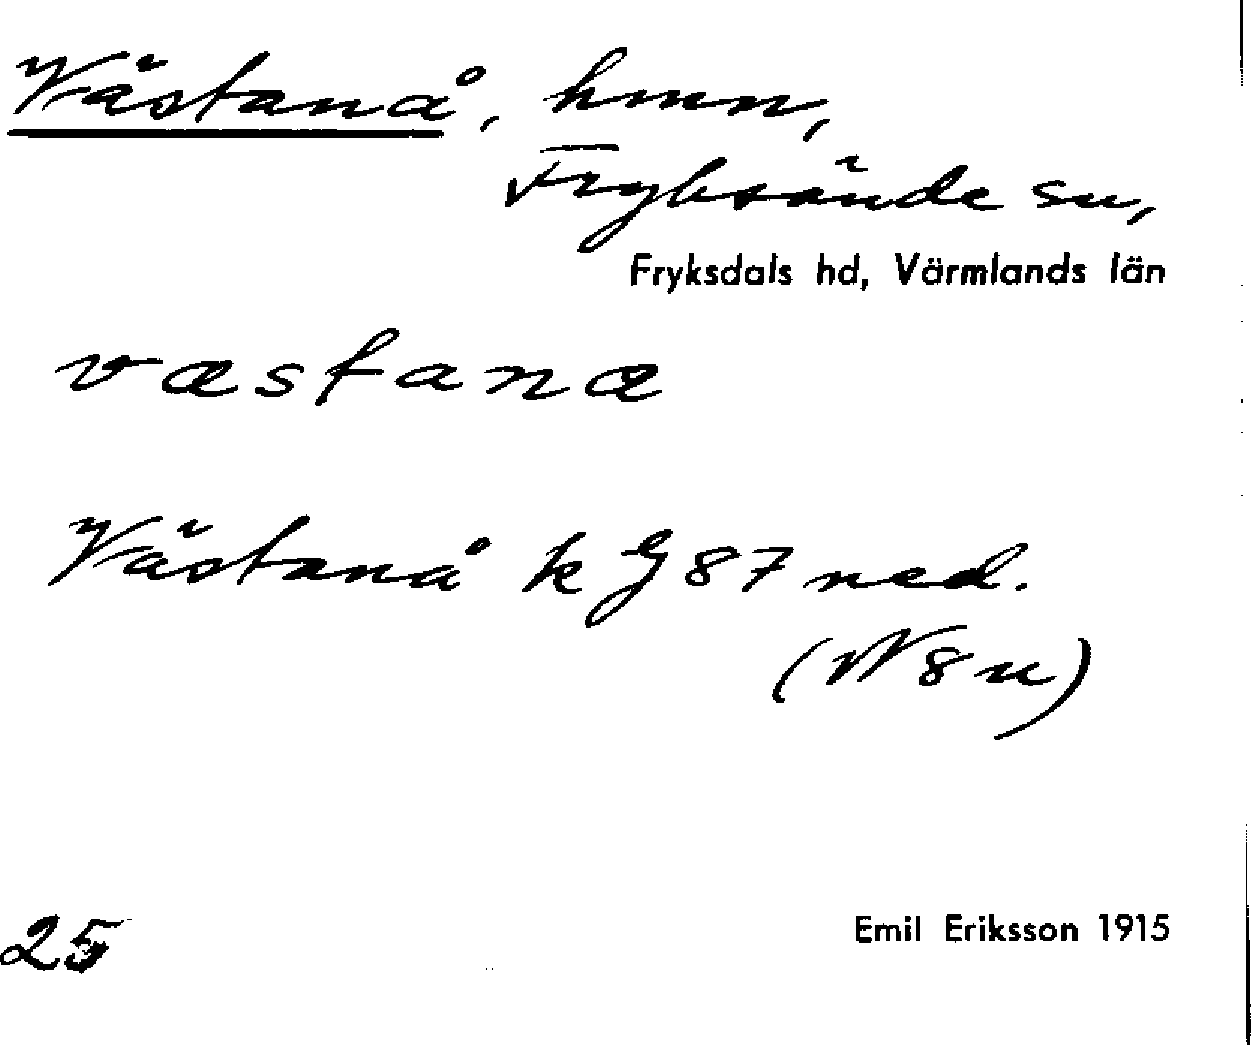 Västanå, hmn,
Fryksände sn,
Fryksdals hd, Värmlands län
væstanæ
Västanå k G 87 ned.
(W 8 u)
25
Emil Eriksson 1915